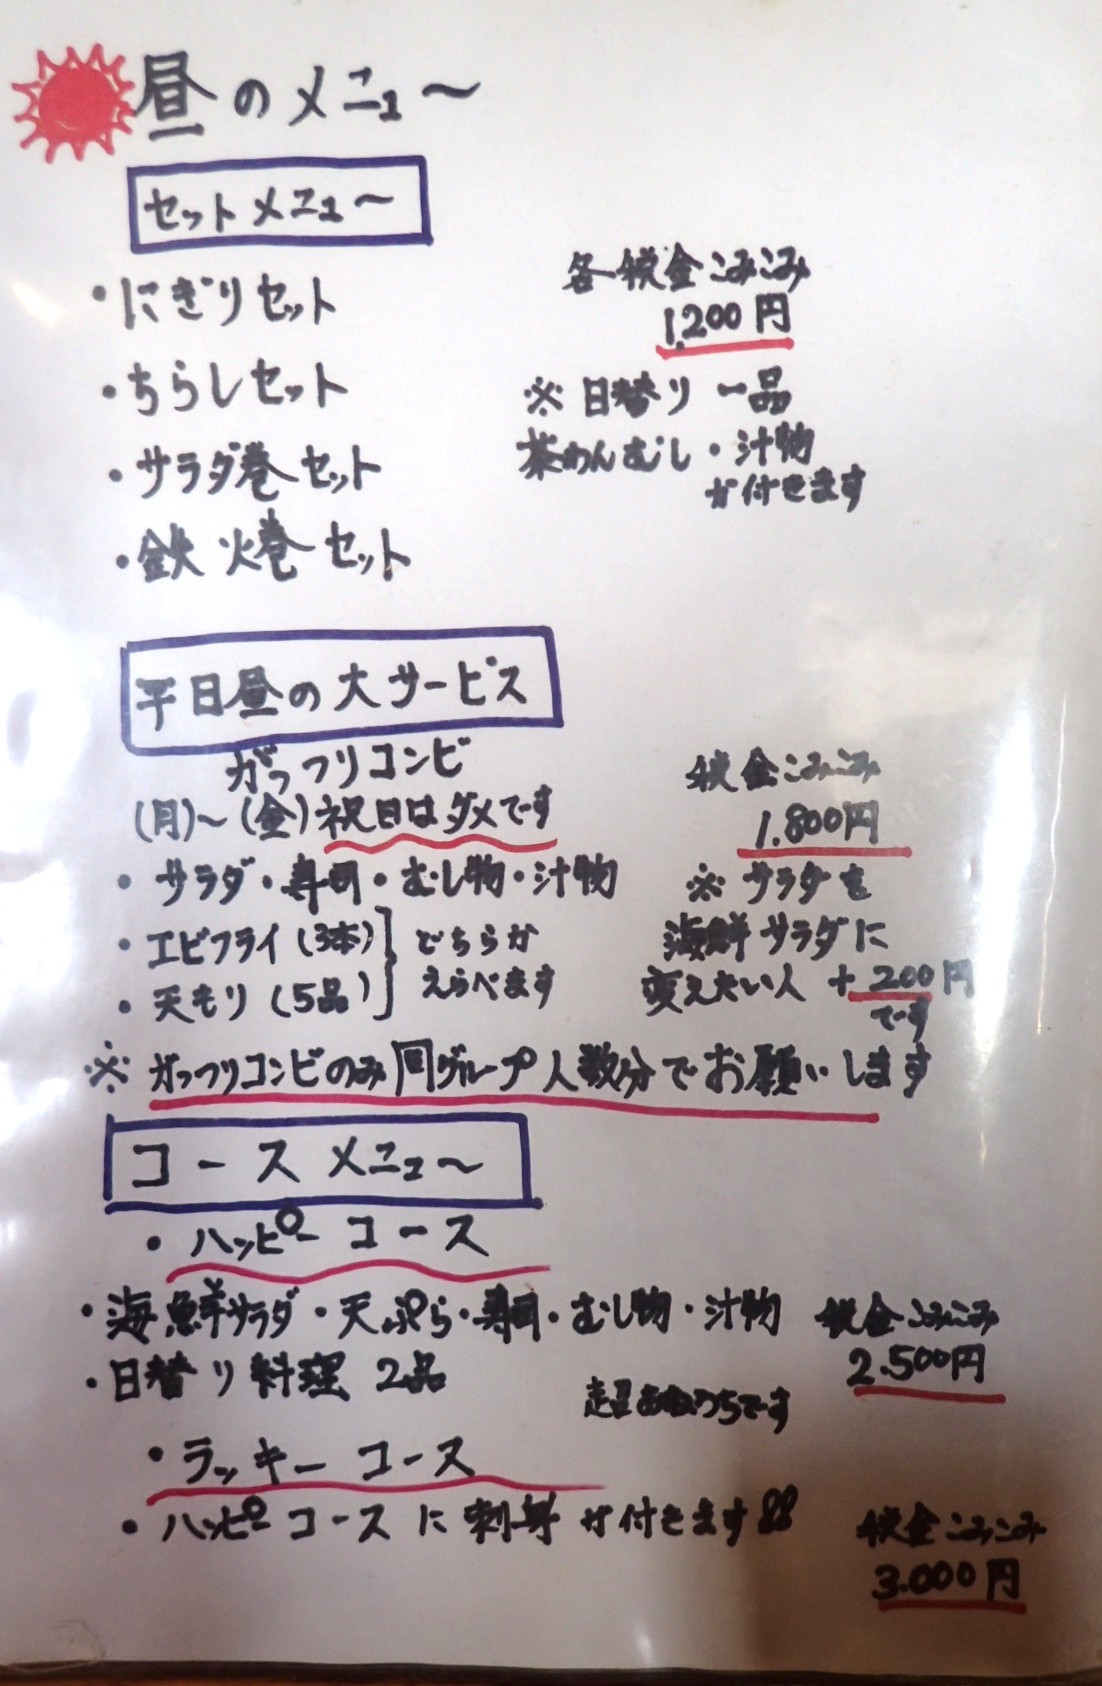 昼のメニュ～
セットメニュ～
・にぎりセット
・ちらしセット
・サラダ巻セット
・鉄火巻セット
各税金こみこみ
1,200円
※日替り一品
茶わんむし・汁物
が付きます
平日昼の大サービス
がっつりコンビ
(月)～(金)祝日はダメです
・サラダ・寿司・むし物・汁物
・エビフライ(3本)
・天もり(5品)
どちらか
えらべます
税金こみこみ
1.800円
※サラダを
海鮮サラダに
変えたい人 +200円
です
※がっつりコンビのみ同グループ人数分でお願いします
コースメニュ～
・ハッピーコース
・海鮮サラダ・天ぷら・寿司・むし物・汁物
・日替り料理 2品
税金こみこみ
2.500円
超お金うちです
・ラッキーコース
・ハッピーコースに刺身が付きます!!
税金こみこみ
3.000円